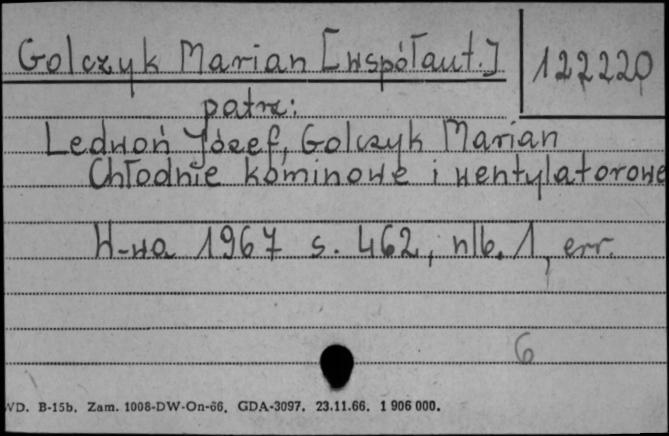 Golczyk Marian [współaut.]
122220
patrz:
Ledwoń Józef, Golczyk Marian
Chłodnie kominowe i wentylatorowe
W-wa 1967 s. 462, nlb. 1, err.
6
WD. B-15b. Zam. 1008-DW-On-66. GDA-3097. 23.11.66. 1 906 000.